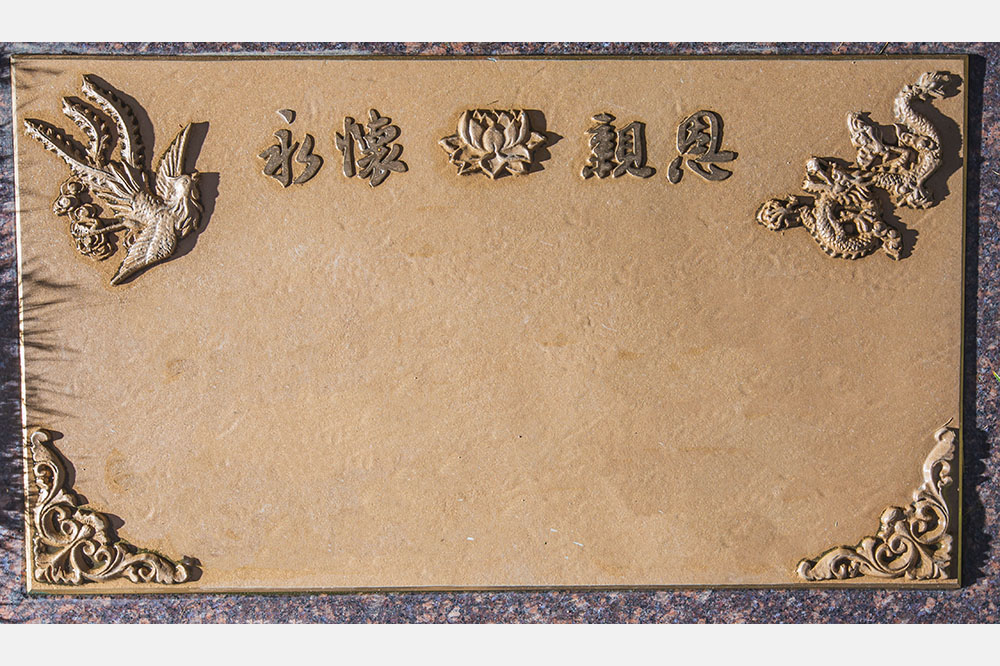 永懷親恩